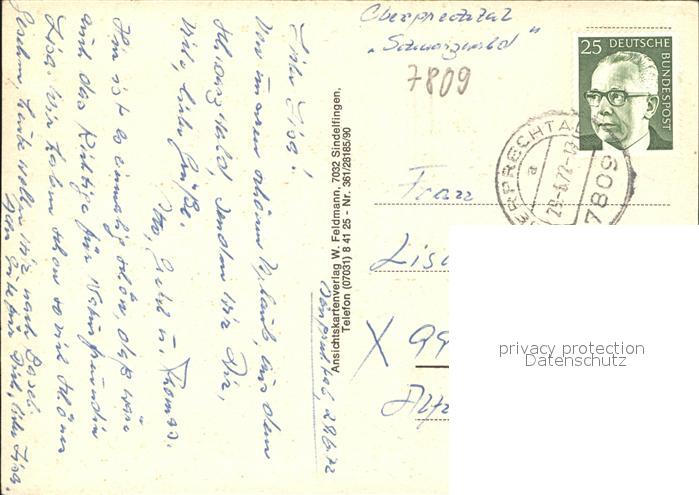 Oberprechtal
„Schwarzwald"
7809
25 DEUTSCHE
BUNDESPOST
OBERPRECHTAL
a
29.-6.72-13
7809
Frau
Lisa
X 99
privacy protection
Datenschutz
Ansichtskartenverlag W. Feldmann, 7032 Sindelfingen,
Telefon (07031) 8 41 25 - Nr. 361/28185/90
Oberprechtal, 28.6.72
Liebe Lisa!
Von unserem schönen Urlaub, aus dem
Schwarzwald senden wir Dir,
viele, liebe Grüße.
u. Thomas.
Hier ist es einmalig schön, das wäre
auch das Richtige für Naturfreundin
Lisa. Wir haben schon so viel Schönes
gesehen, heute wollen wir nach Basel.
Alles Gute für Dich, liebe Lisa.